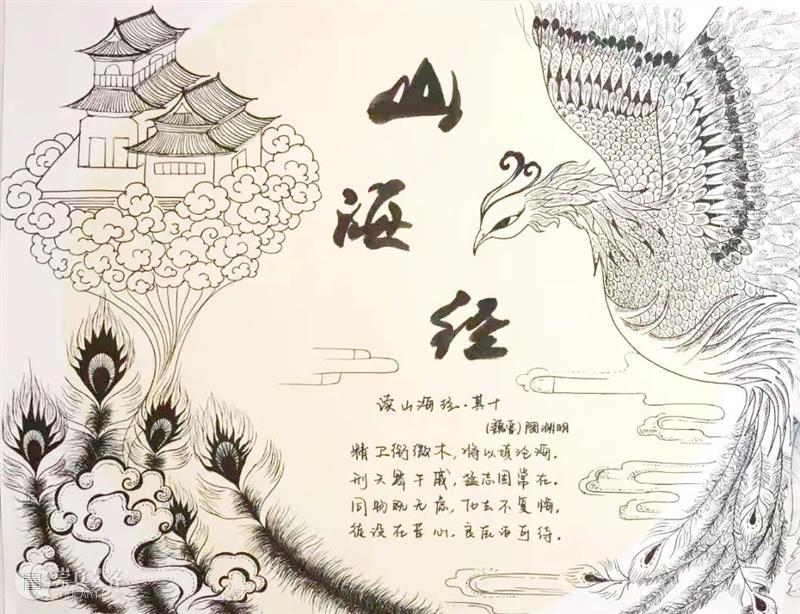 山
海
经
读山海经·其十
(魏晋) 陶渊明
精卫衔微木，将以填沧海。
刑天舞干戚，猛志固常在。
同物既无虑，化去不复悔。
徒设在昔心，良辰讵可待。